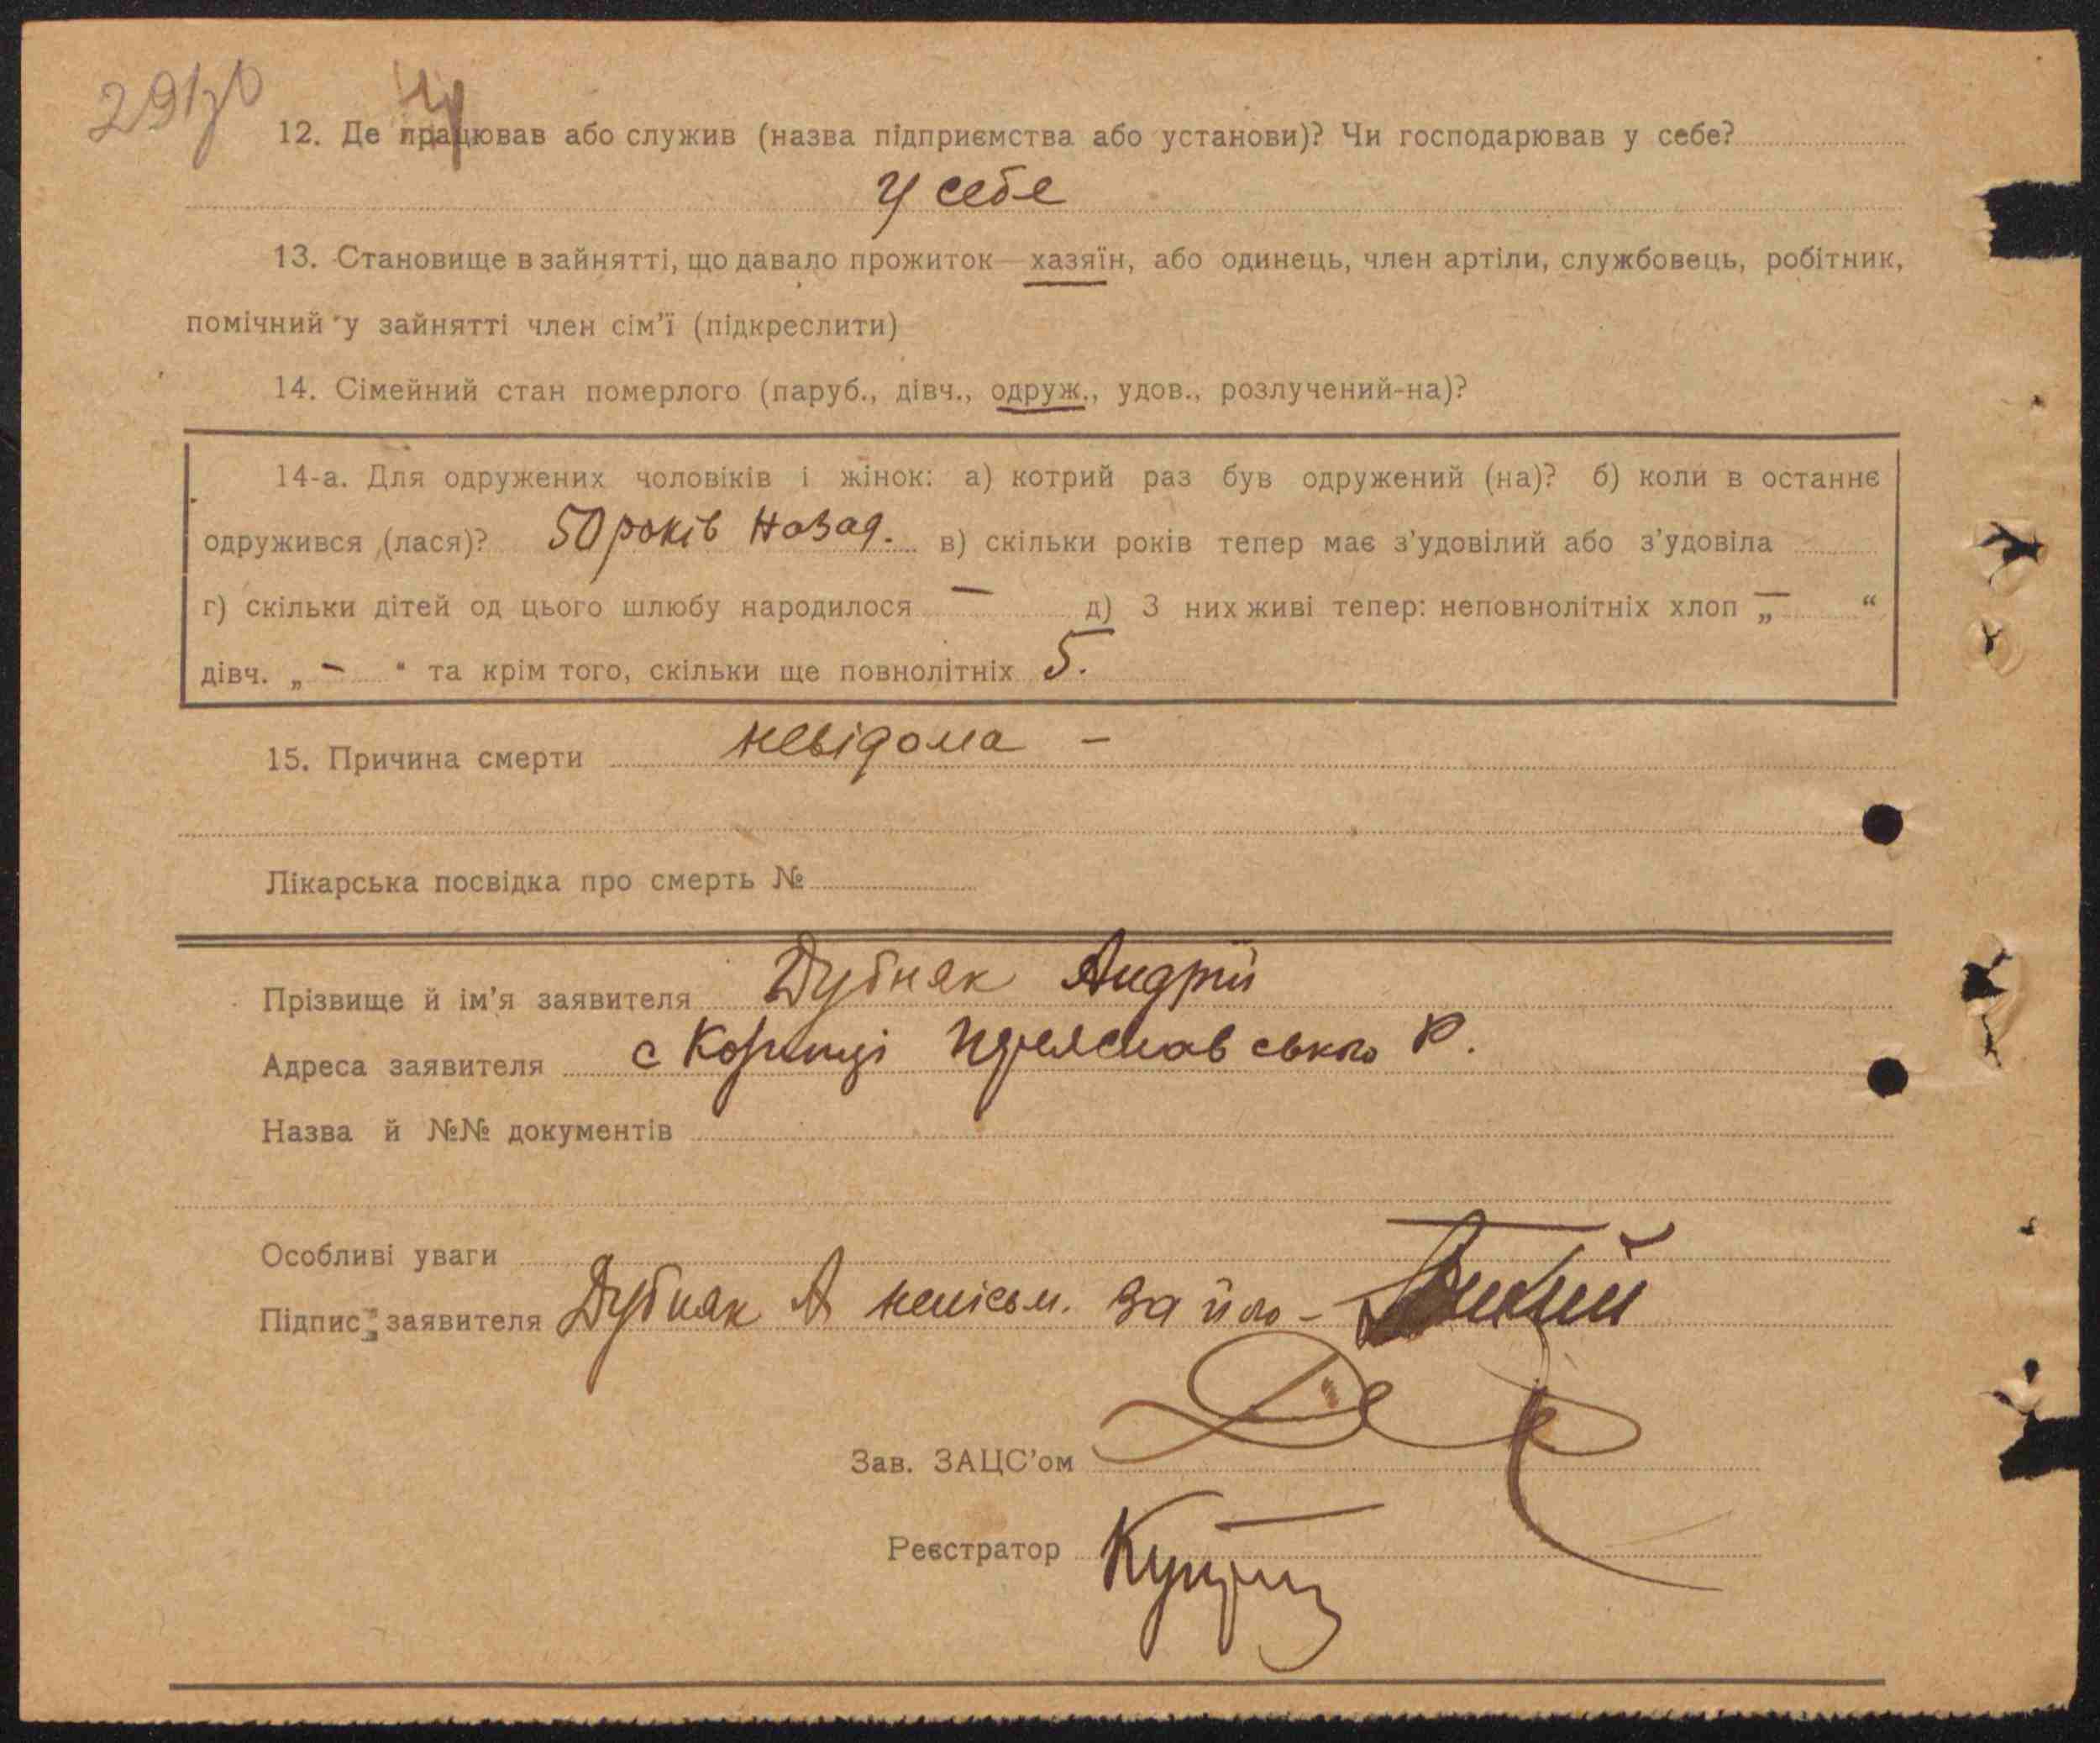 12. Де працював або служив (назва підприємства або установи)? Чи господарював у себе?
У себе
13. Становище в зайнятті, що давало прожиток—хазяїн, або одинець, член артіли, службовець, робітник,
помічний у зайнятті член сім’ї (підкреслити)
14. Сімейний стан померлого (паруб., дівч., одруж., удов., розлучений-на)?
14-а. Для одружених чоловіків і жінок: а) котрий раз був одружений (на)? б) коли в останнє
одружився (лася)? 50 років назад. в) скільки років тепер має з’удовілий або з’удовіла
г) скільки дітей од цього шлюбу народилося — д) З них живі тепер: неповнолітніх хлоп „—“
дівч. „—“ та крім того, скільки ще повнолітніх 5.
15. Причина смерти невідома –
Лікарська посвідка про смерть №
Прізвище й ім’я заявителя Дубняк Андрій
Адреса заявителя с ського Р.
Назва й №№ документів
Особливі уваги
Підпис заявителя Дубняк А неписьм. За його –
Зав. ЗАЦС’ом
Реєстратор